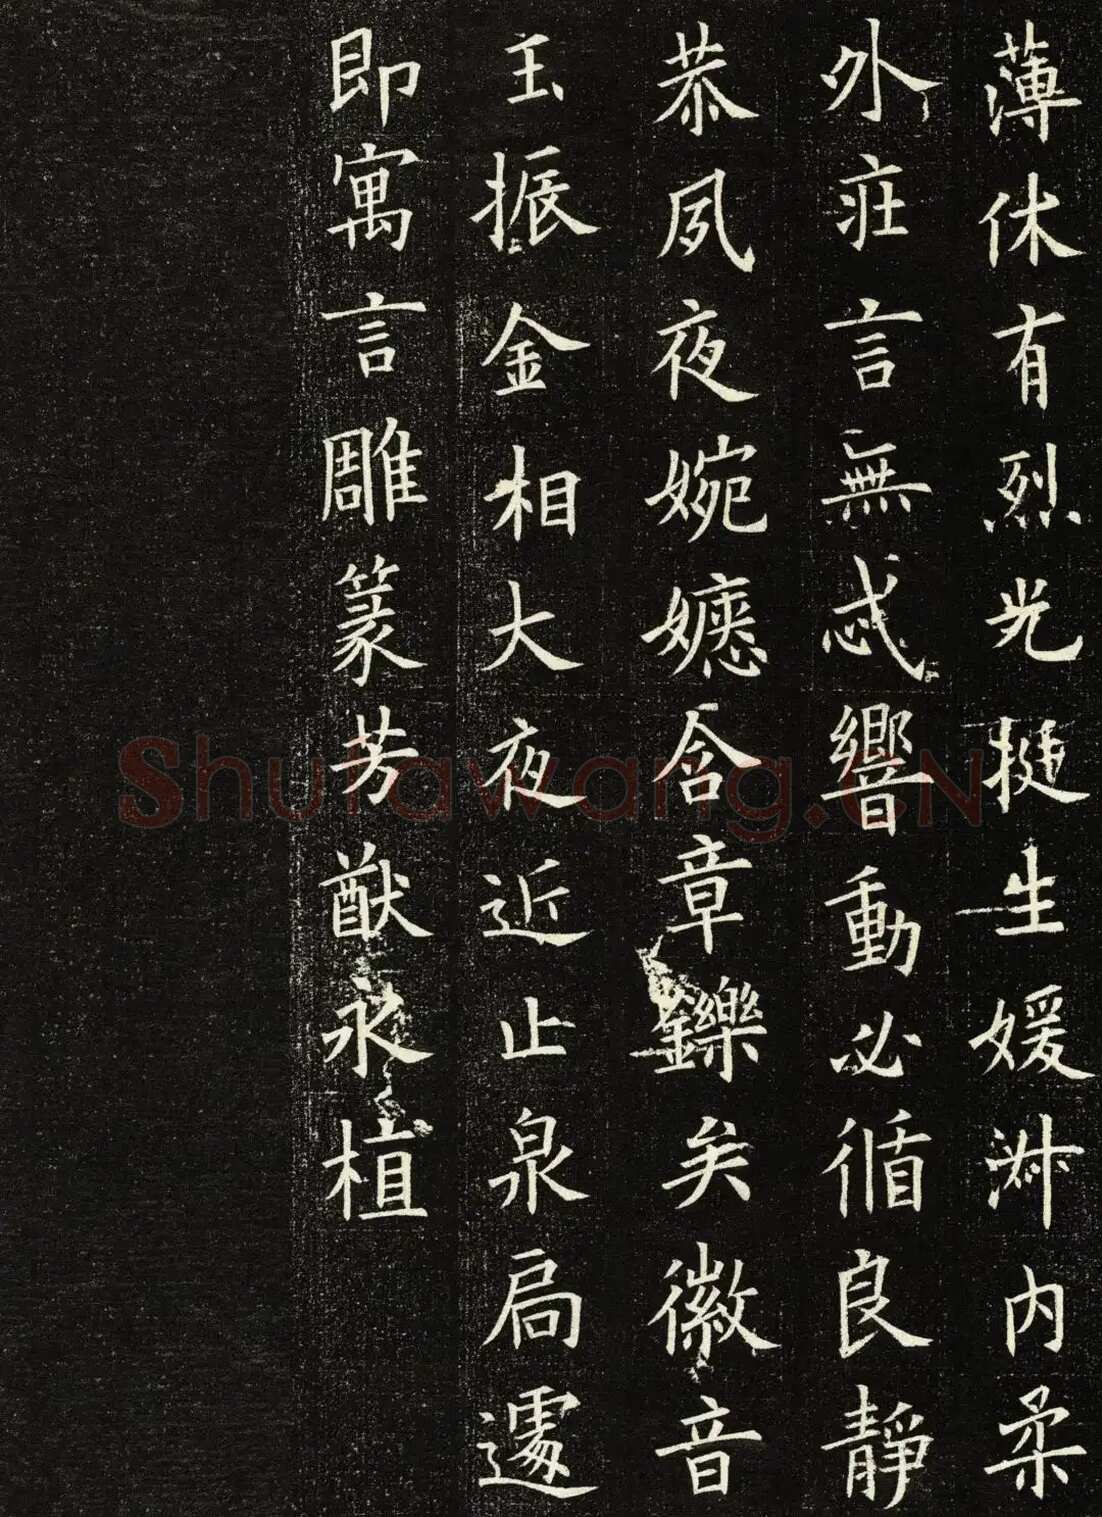 薄休有烈光挺生媛淑内柔
外莊言無忒響動必循良靜
恭夙夜婉嬺含章鑠矣徽音
玉振金相大夜近止泉扃遽
即寓言雕篆芳猷永植
Shufawang.CN